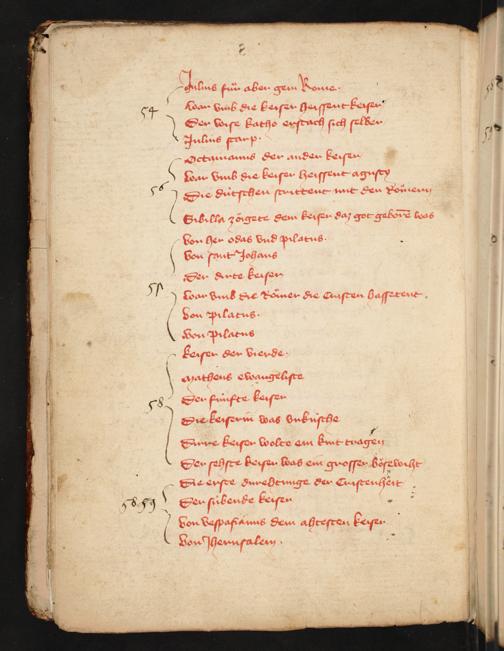 8
Julius fuͦr aber gem Rome
54
war vmb die keiser heissent keiser
Der wise katho erstach sich selber
Julius starp
Octauianus der ander keiser
war vmb die keiser heissent agusty
56
Die dútschen strittent mit den Roͤmern
Sibilla zoͤigete dem keiser daz got geborn̄ was
von herodas vnd pilatus
von sant Johans
Der dirte keiser
57
war vmb die Roͤmer die Cristen hassetent
von pilatus
von pilatus
keiser der vierde
Matheus ewangeliste
Der fúnfte keiser
58
Die keiserin was vnkúsche
Dirre keiser wolte ein kint tragen
Der sehste keiser was ein grosser boͤsewiht
Die erste durehtunge der Cristenheit
58 59
Der súbende keiser
von vespasianus dem ahtesten keiser
von Jherusalem